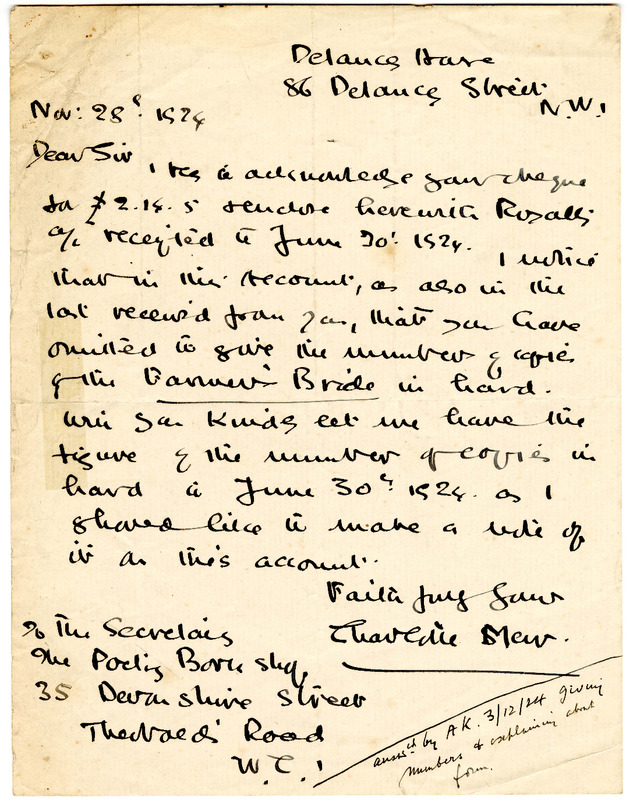 Delancey House
86 Delancey Street
N.W.1
Nov: 28th 1924
Dear Sir
I beg to acknowledge your cheque
for £ 2.14.5 & enclose herewith Royalty
a/c receipted to June 30th 1924.
I notice
that in this account, as also in the
last received from you, that you have
omitted to give the number of copies
of the Farmer's Bride in hand.
Will you kindly let me have the
figure of the number of copies in
hand to June 30th 1924. as I
should like to make a note of
it on this account.
Faithfully yours
Charlotte Mew.
To The Secretary
The Poetry Bookshop,
35 Devonshire Street
Theobalds Road
W.C.1
answd by A K. 3/12/24 giving
numbers & explaining about
form.